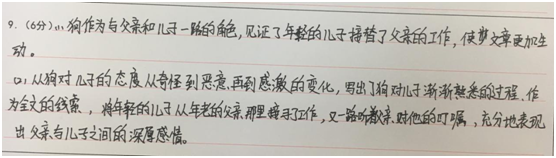 9.(6分)(1)狗作为与父亲和儿子一路的角色,见证了年轻的儿子接替了父亲的工作,使文章更加生
动。
(2)从狗对儿子的态度从奇怪到恶意,再到感激的变化,写出了狗对儿子渐渐熟悉的过程.作
为全文的线索,将年轻的儿子从年老的父亲那里接手了工作,又一路听父亲对他的叮嘱,充分地表现
出父亲与儿子之间的深厚感情。